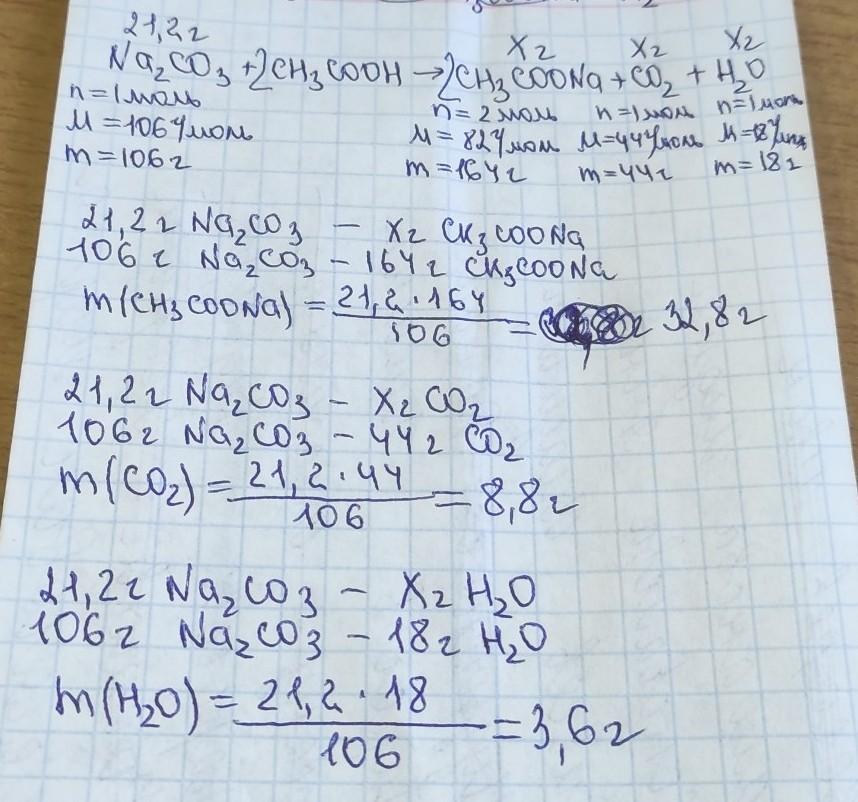 21,2г
Xг Xг Xг
Na₂CO₃ + 2CH₃COOH → 2CH₃COONa + CO₂ + H₂O
n = 1моль n = 2моль n = 1моль n = 1моль
M = 106г/моль M = 82г/моль M = 44г/моль M = 18г/моль
m = 106г m = 164г m = 44г m = 18г
21,2г Na₂CO₃ – Xг CH₃COONa
106г Na₂CO₃ – 164г CH₃COONa
m(CH₃COONa) = 21,2·164
106
= 32,8г
21,2г Na₂CO₃ – Xг CO₂
106г Na₂CO₃ – 44г CO₂
m(CO₂) = 21,2·44
106
= 8,8г
21,2г Na₂CO₃ – Xг H₂O
106г Na₂CO₃ – 18г H₂O
m(H₂O) = 21,2·18
106
= 3,6г